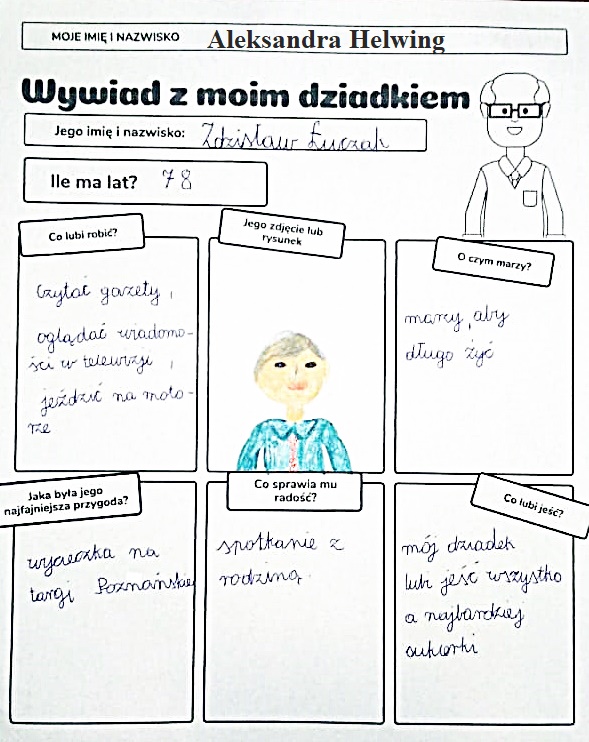 MOJE IMIĘ I NAZWISKO Aleksandra Helwing
Wywiad z moim dziadkiem
Jego imię i nazwisko: Zdzisław Łuczak
Ile ma lat? 78
Co lubi robić?
czytać gazety,
oglądać wiadomo-
ści w telewizji,
jeździć na moto-
rze
Jego zdjęcie lub
rysunek
O czym marzy?
marzy, aby
długo żyć
Jaka była jego
najfajniejsza przygoda?
wycieczka na
targi Poznańskie
Co sprawia mu
radość?
spotkanie z
rodziną.
Co lubi jeść?
mój dziadek
lubi jeść wszystko
a najbardziej
cukierki